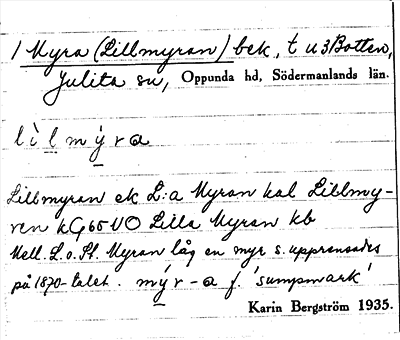 1 Myra (Lillmyran) bek., t u 3 Botten,
Julita sn, Oppunda hd, Södermanlands län.
lìlmýra
Lillmyran ek L:a Myran kal Lillmy-
ren kG 65 VO Lilla Myran kb
Mell. L. o. St. Myran låg en myr s. upprensades
på 1870-talet. mýr-a f. 'sumpmark'
Karin Bergström 1935.